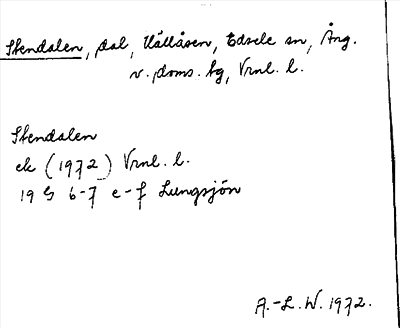 Stendalen, dal, Källåsen, Edsele sn, Ång.
v. doms. tg, Vrnl. l.
Stendalen
ek (1972) Vrnl. l.
19 G 6-7 e-f Lungsjön
A.-L. W. 1972.